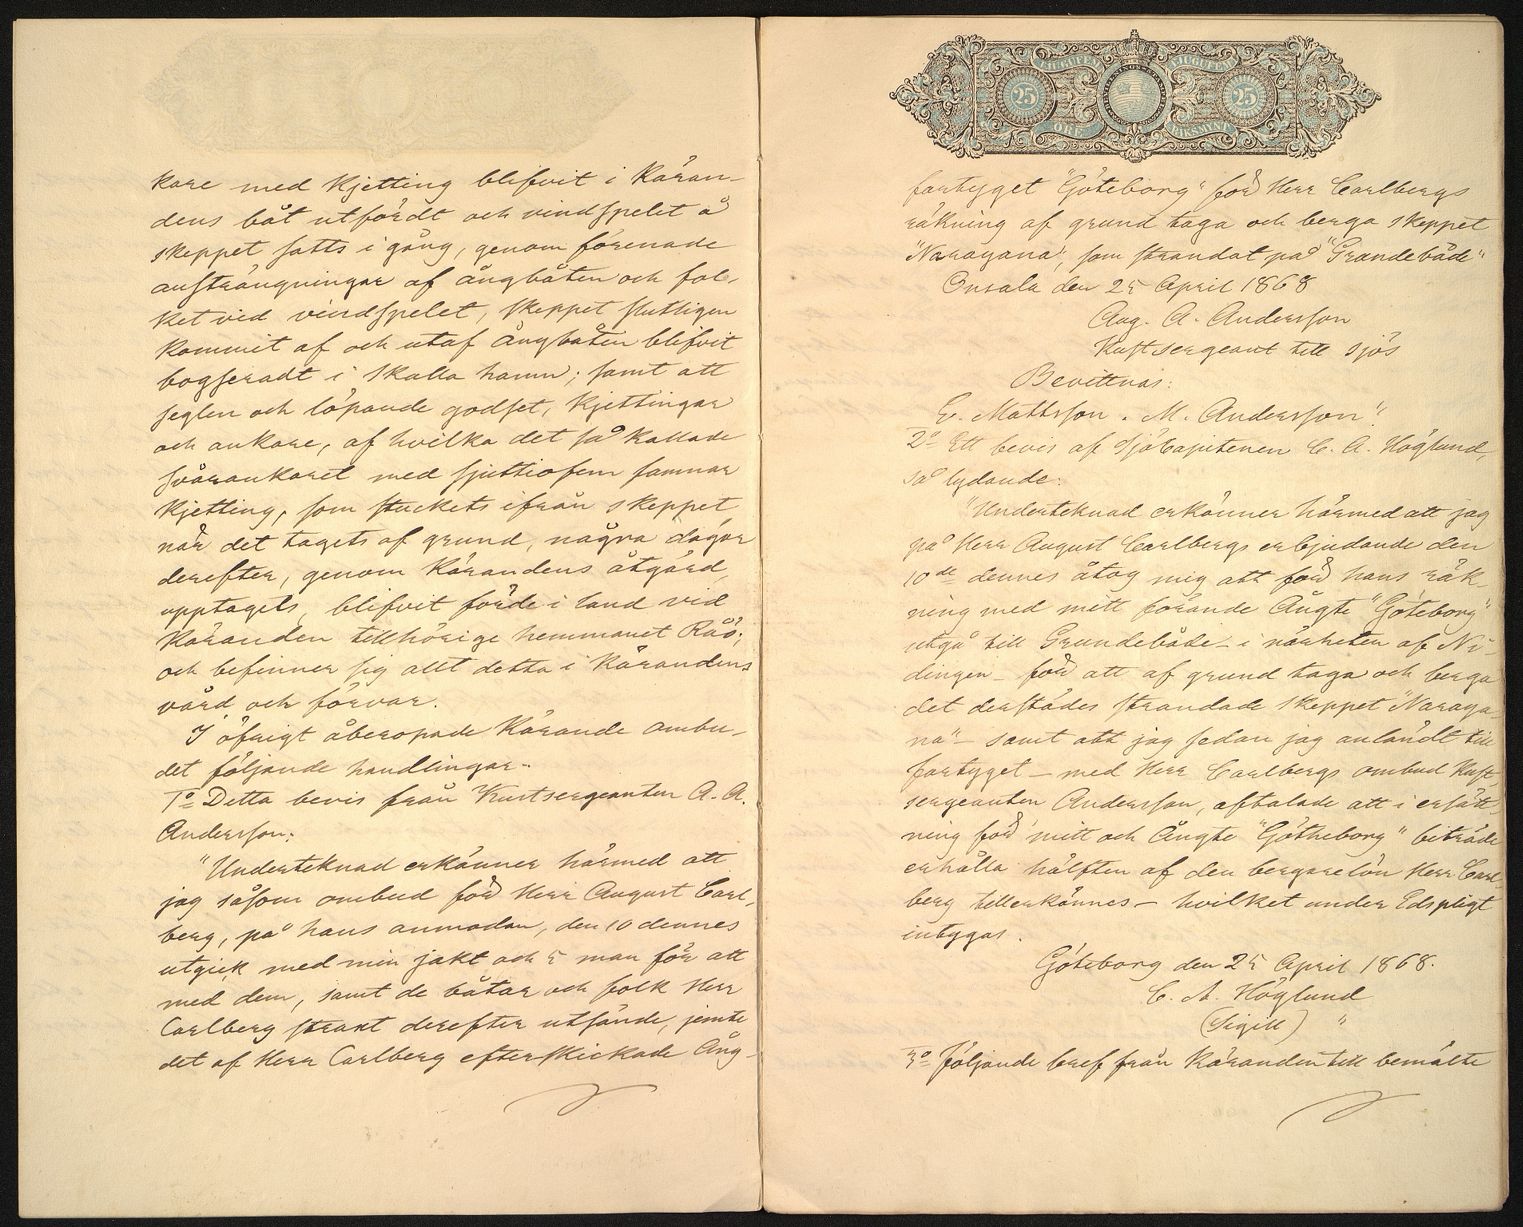 kare med kjetting blifvit i Käran-
dens båt utfördt och vindspelet å
skeppet satts i gång, genom förenade
ansträngningar af ångbåten och fol-
ket vid vindspelet, skeppet slutligen
kommit af och utaf ångbåten blifvit
bogseradt i Skalla hamn; samt att
seglen och löpande godset, kjettingar
och ankare, af hvilka det så kallade
svårankaret med sjuttiofem famnar
kjetting, som stuckets ifrån skeppet
när det tagets af grund, några dagar
derefter, genom Kärandens åtgärd,
upptagets, blifvit förde i land vid
Käranden tillhörige hemmanet Råö;
och befinner sig allt detta i Kärandens
vård och förvar.
I öfrigt åberopade Kärande ombu-
det följande handlingar:
1º Detta bevis från Kustsergeanten A. A.
Andersson:
"Undertecknad erkänner härmed att
jag såsom ombud för Herr August Carl-
berg, på hans anmodan, den 10 dennes
utgick med min jakt och 5 man för att
med dem, samt de båtar och folk Herr
Carlberg straxt derefter utsände, jemte
det af Herr Carlberg efterskickade Ång-
TJUGUFEM TJUGUFEM
25 25
ÖRE RIKSMYNT
fartyget "Göteborg" för Herr Carlbergs
räkning af grund taga och berga skeppet
"Narayana", som strandat på "Grundebåde"
Onsala den 25 April 1868
Aug. A. Andersson
Kustsergeant till sjös
Bevittnas:
E. Mattsson. M. Andersson."
2º Ett bevis af Sjökapitenen C. A. Höglund,
så lydande:
"Undertecknad erkänner härmed att jag
på Herr August Carlbergs erbjudande den
10de dennes åtog mig att för hans räk-
ning med mitt förande Ångfe "Göteborg"
utgå till Grundebåde – i närheten af Ni-
dingen – för att af grund taga och berga
det derstädes strandade skeppet "Naraya-
na" – samt att jag sedan jag anländt till
fartyget – med Herr Carlbergs ombud Kust-
sergeanten Andersson, aftalade att i ersätt-
ning för mitt och Ångfe "Götheborg" biträde
erhålla hälften af den bergarelön Herr Carl-
berg tillerkännes – hvilket under Edspligt
intygas.
Göteborg den 25 April 1868.
C. A. Höglund
(Sigill) "
3º Följande bref från Käranden till bemälte